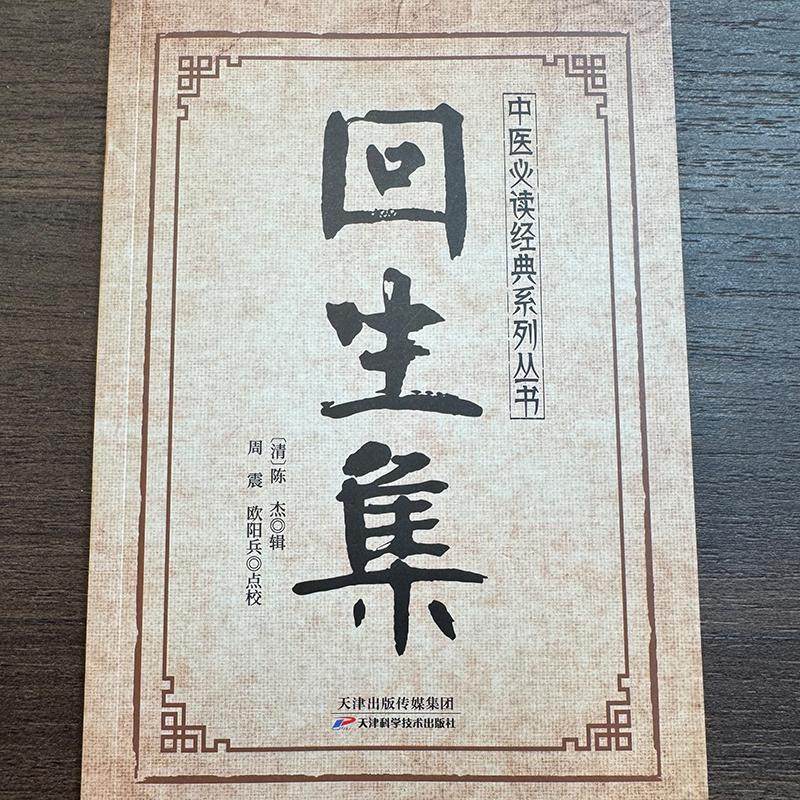 中医必读经典系列丛书
回生集
〔清〕陈杰◎辑
周震 欧阳兵◎点校
天津出版传媒集团
天津科学技术出版社